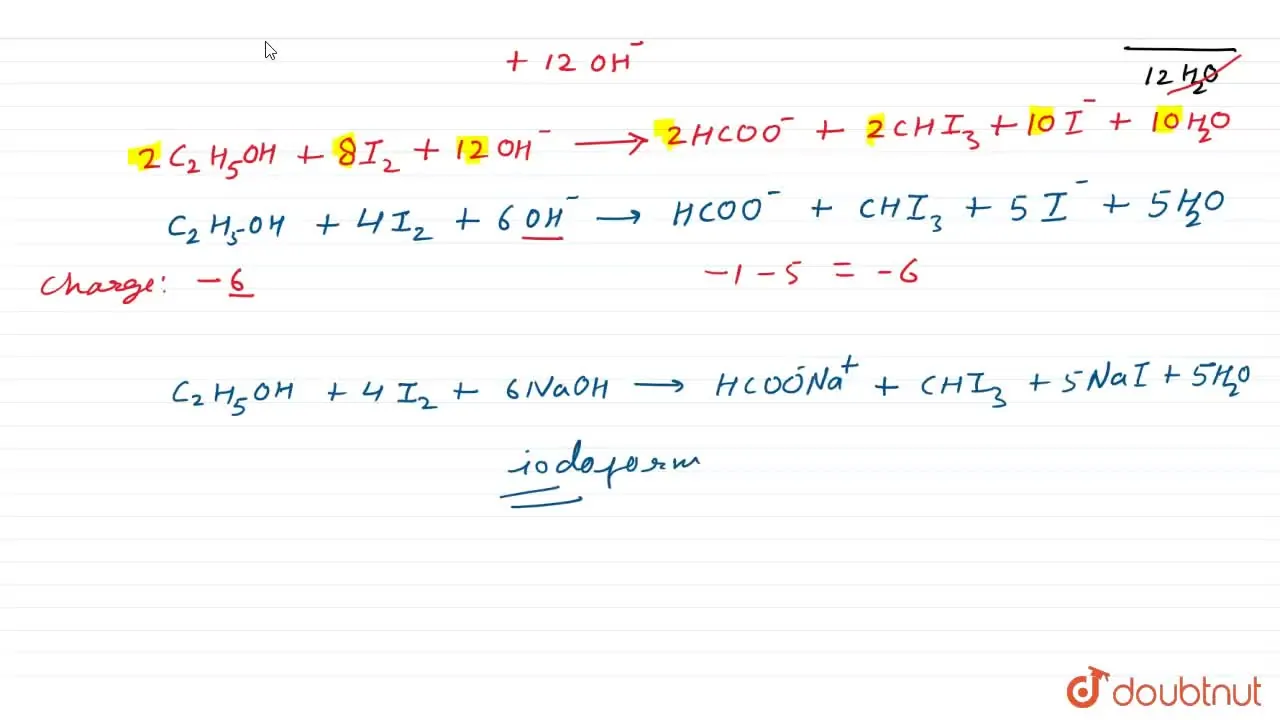 + 12 OH⁻
12 H₂O
2 C₂H₅OH + 8I₂ + 12 OH⁻ ⟶ 2HCOO⁻ + 2CHI₃ + 10 I⁻ + 10 H₂O
C₂H₅OH + 4I₂ + 6 OH⁻ → HCOO⁻ + CHI₃ + 5 I⁻ + 5H₂O
Charge: -6 -1 - 5 = -6
C₂H₅OH + 4 I₂ + 6NaOH → HCOO⁻Na⁺ + CHI₃ + 5NaI + 5H₂O
iodoform
doubtnut